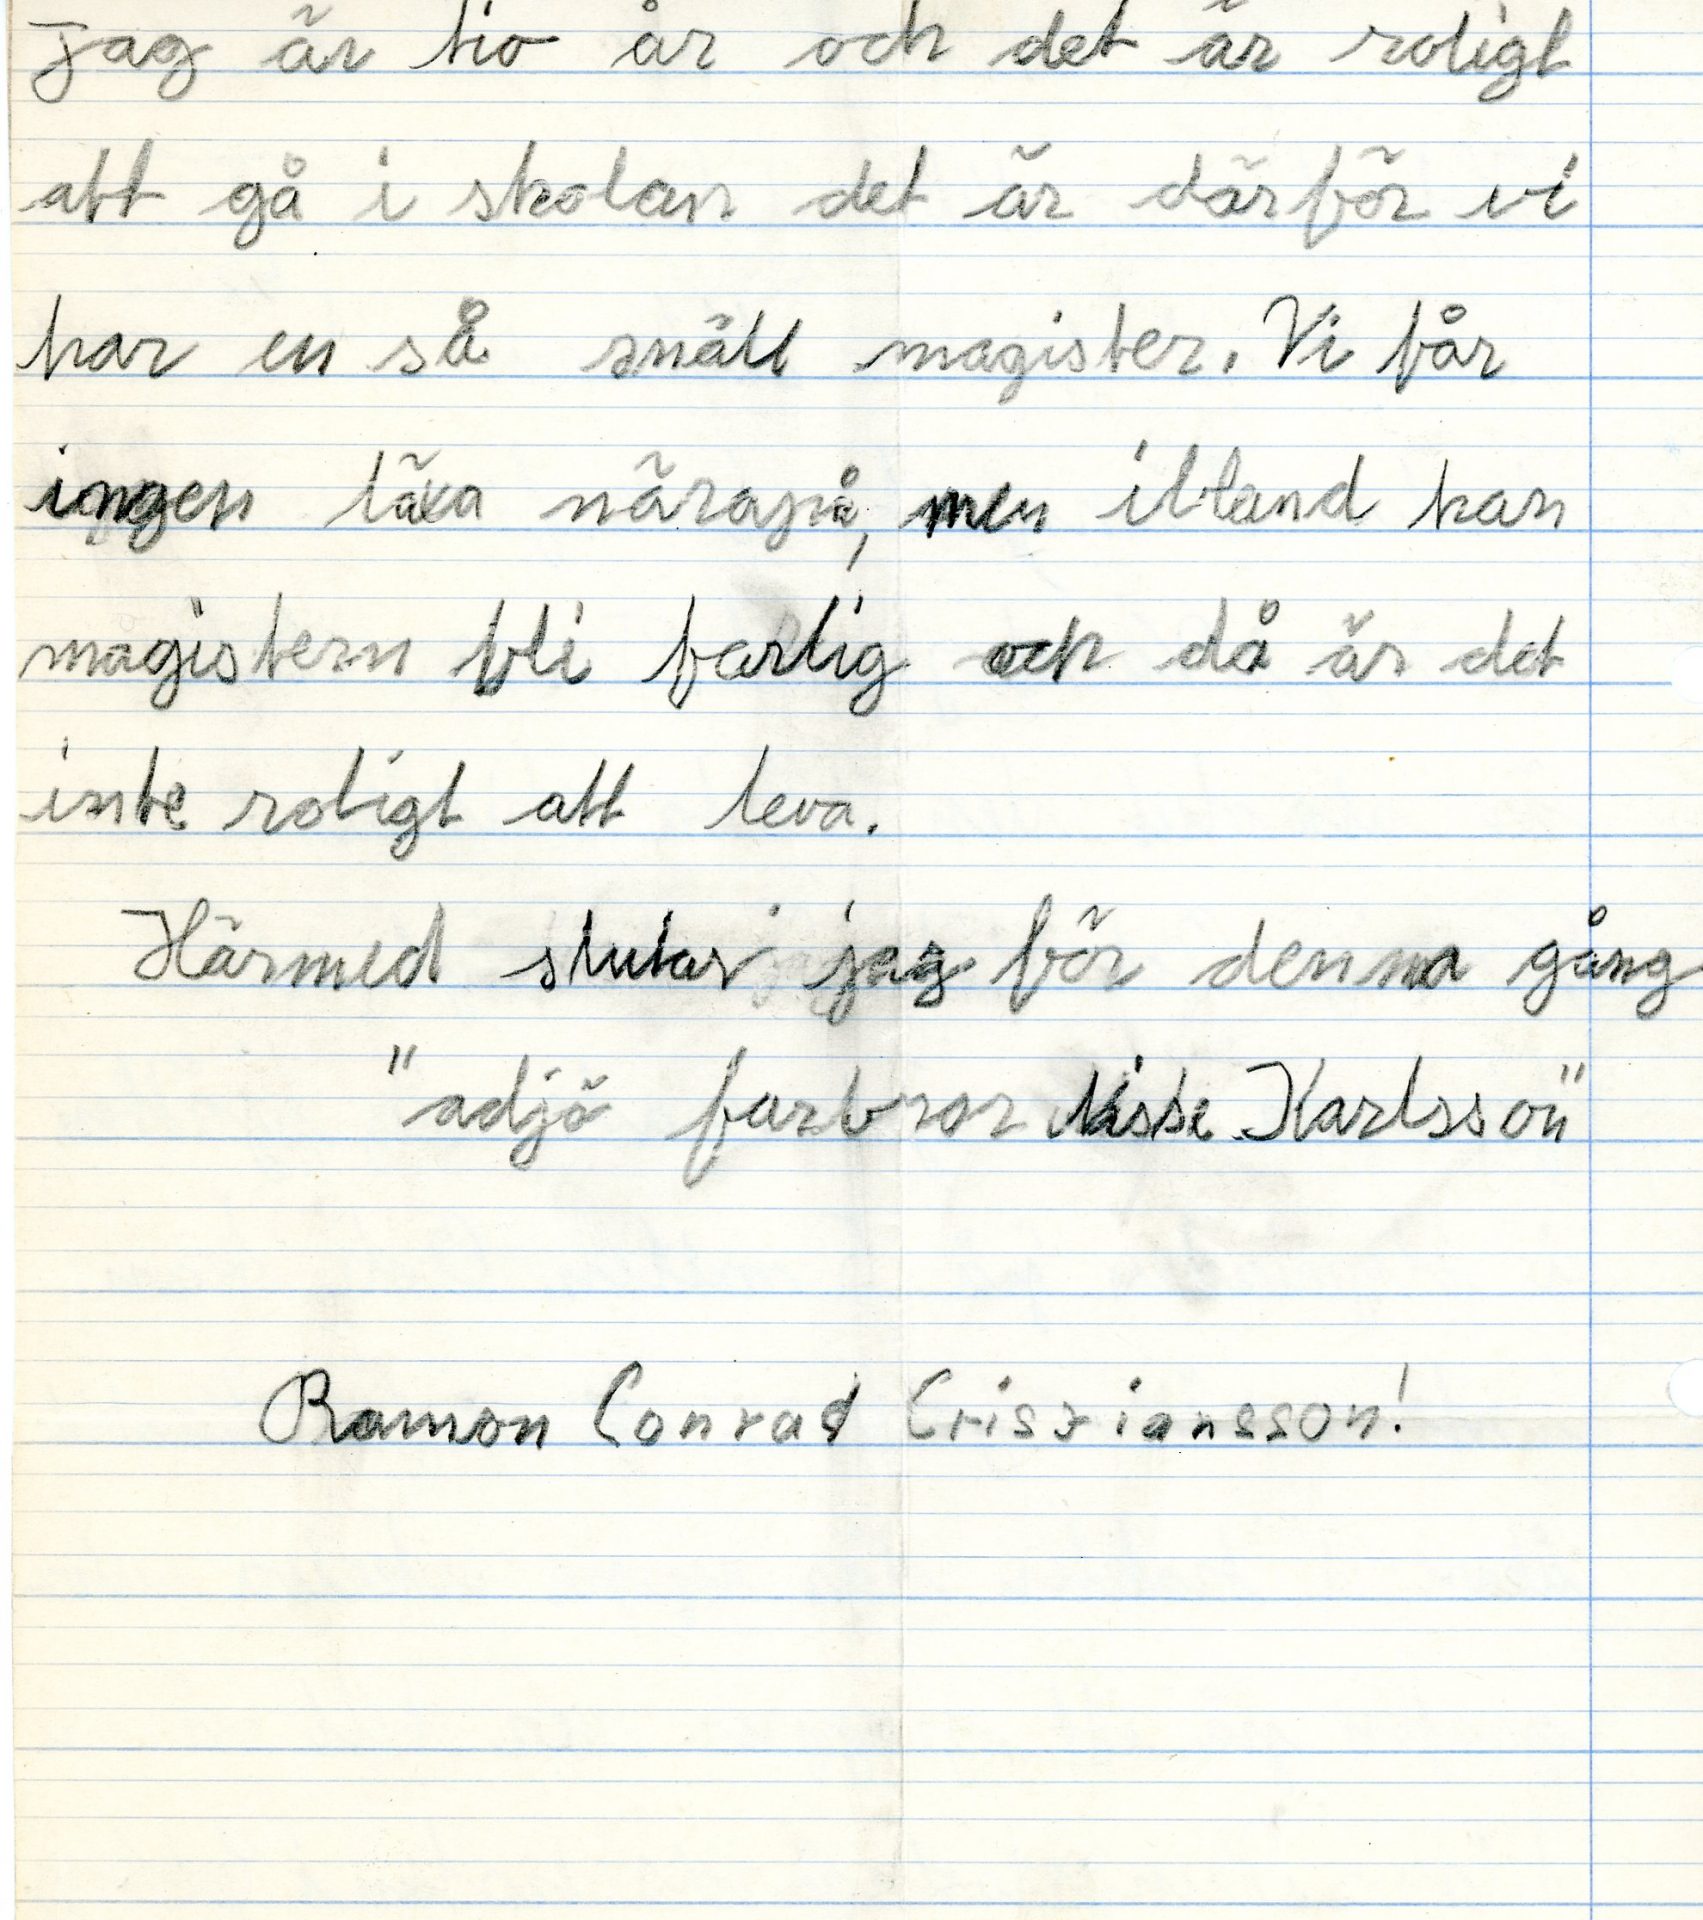 jag är tio år och det är roligt
att gå i skolan det är därför vi
har en så snäll magister. Vi får
ingen läxa närapå, men ibland kan
magistern bli farlig och då är det
inte roligt att leva.
Härmed slutar jag för denna gång
"adjö farbror Karlsson"
Ramon Conrad Cristiansson!